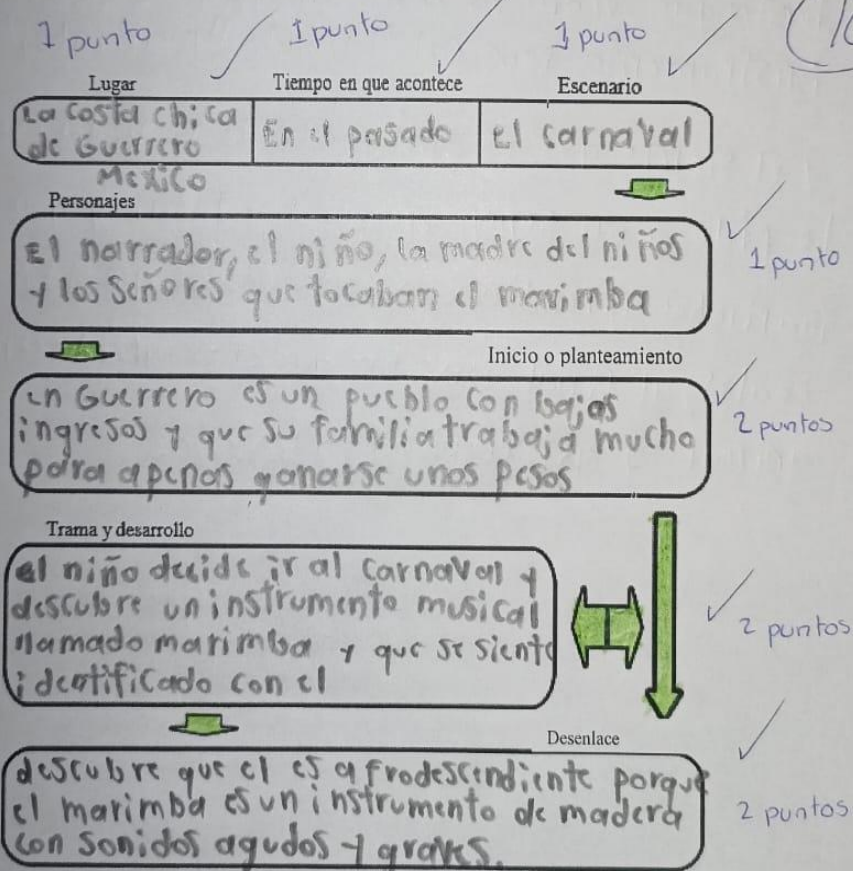 1 punto 1 punto 1 punto
Lugar Tiempo en que acontece Escenario
La costa chica En el pasado el carnaval
de Guerrero
Mexico
Personajes
El narrador, el niño, la madre del niños
y los señores que tocaban el marimba
1 punto
Inicio o planteamiento
en Guerrero es un pueblo con bajos
ingresos y que su familia trabaja mucho
para apenas ganarse unos pesos
2 puntos
Trama y desarrollo
el niño decide ir al carnaval y
descubre un instrumento musical
llamado marimba y que se siente
identificado con el
2 puntos
Desenlace
descubre que el es afrodescendiente porque
el marimba es un instrumento de madera
con sonidos agudos y graves.
2 puntos